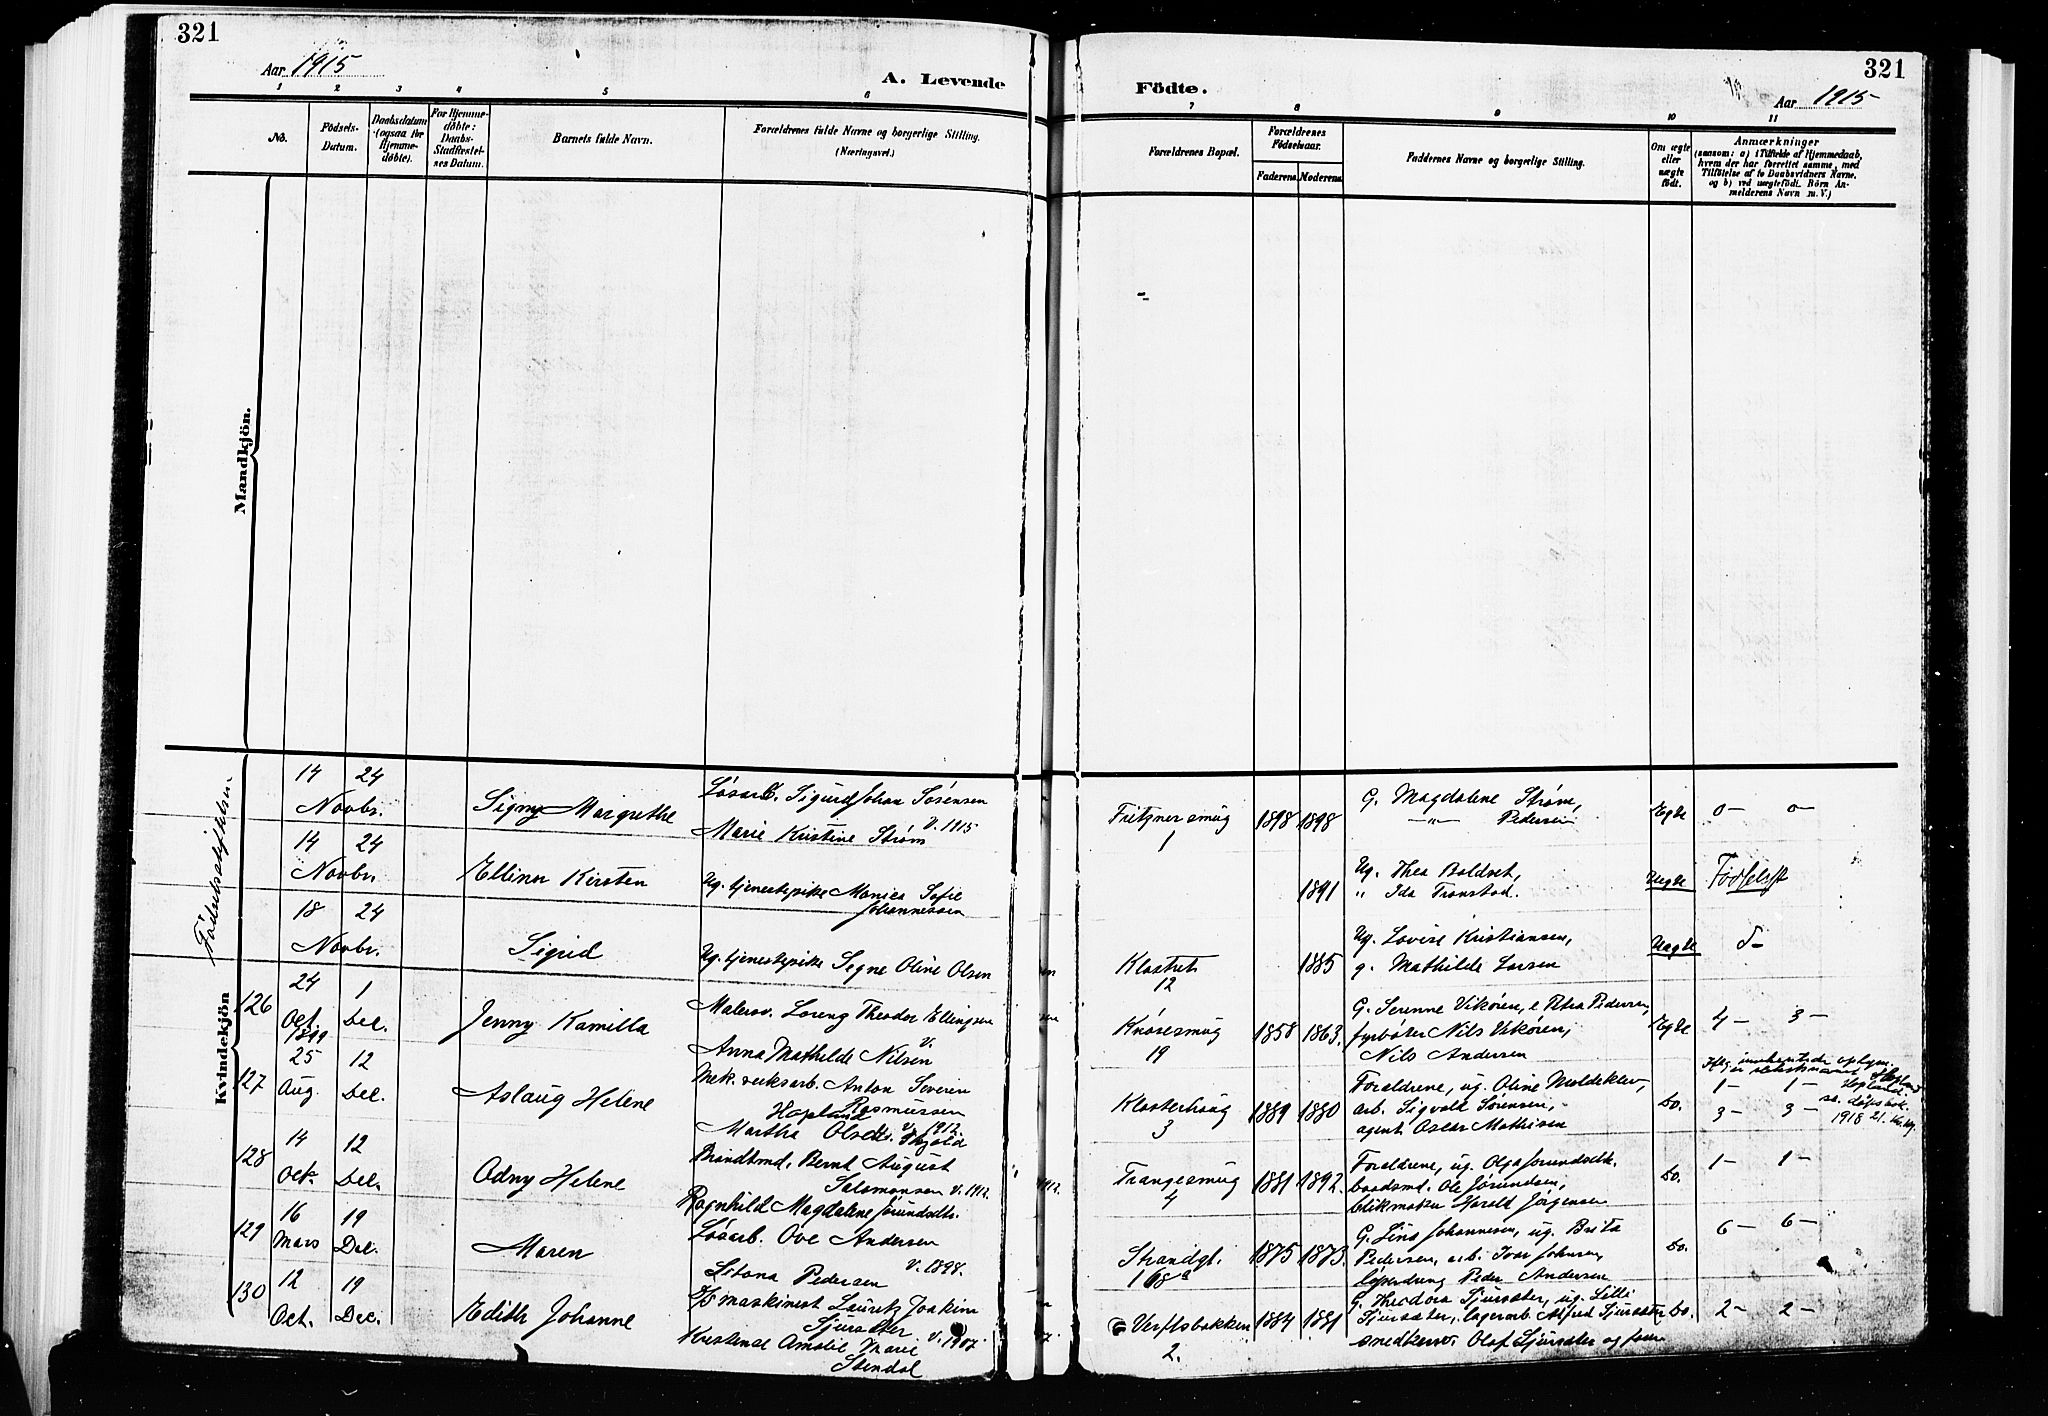 321
Aar 1915
A. Levende
1 2 3 4 5 6
No.
Födsels-Datum.
Daabsdatum (ogsaa for Hjemme-döbte).
For Hjemme-döbte: Daabs-Stadfæstel-ses Datum.
Barnets fulde Navn.
Forældrenes fulde Navne og borgerlige Stilling.
(Næringsvei.)
Mandkjön.
Kvindekjön
Fødselsstiftelsen
14 Novbr. 24
Signy Margrethe
Løsarb. Sigurd Johan Sørensen
Marie Kristine Strøm V. 1915
14 Novbr. 24
Ellinu Kirsten
Ug. tjenestepike Monica Sofie
Johannessen
18 Novbr. 24
Sigrid
Ug. tjenestepike Signe Oline Olsen
126
24 Oct. 1
1899 Dec.
Jenny Kamilla
Malersv. Lorenz Theodor Ellingsen
Anna Mathilde Nilsen V.
127
25 Aug. 12 Dec.
Aslaug Helene
Mek. verksarb. Anton Severin
Hopland Rasmussen
Martha Olsdtr. Skjold V. 1912.
128
14 Oct. 12 Dec.
Odny Helene
Brandtmd. Bernt August
Salomonsen V. 1912.
Ragnhild Magdalene Jørundsdtr.
129
16 Mars 19 Dec.
Maren
Løsarb. Ove Andersen
V. 1898.
Litona Pedersen
130
12 Oct. 19 Dec.
Edith Johanne
D/S maskinist Lauritz Joakim
Sjursæter V. 1907.
Kristense Amalie Marie
Stendal
321
Födte.
Aar 1915
7 8 9 10 11
Forældrenes Bopæl.
Forældrenes Födselsaar.
Faderens Moderens
Faddernes Navne og borgerlige Stilling.
Om ægte eller uægte födt.
Anmærkninger
(saasom: a) i Tilfælde af Hjemmedaab, hvem der har forrettet samme, med Tilföielse af to Daabsvidners Navne, og b) ved uægtefödt. Börn An-melderens Navn m. V.)
Fritznersmug 1
1898 1898
G. Magdalene Strøm,
—"— Pedersen
Egte
0— 0—
1891
Ug. Thea Boldvet,
" Ida Tronstad.
Uegte
Fødselsst
Klostret 12
1885
Ug. Lovise Kristiansen,
g. Mathilde Larsen
Uegte
d—
Knøsesmug 19
1858 1863.
G. Serenne Vikøren, e Petra Pedersen,
fyrbøter Nils Vikøren,
Nils Andersen
Egte
4— 3—
Klosterhaug 3
1889 1880
Forældrene, ug. Oline Moldeklev,
arb. Sigvald Sørensen,
agent Oscar Mathisen
Do.
1— 1—
3— 3—
1918
Trangesmug 4
1881 1892.
Forældrene, ug. Olga Jørundsdtr.
baadsmd. Ole Jørundsen,
blikmaker Harald Jørgensen
Do.
1— 1—
Strandgt. 168a
1875 1873.
G. Lina Johannesen, ug. Brita
Pedersen, arb. Ivar Johnsen,
løpendreng Peder Andersen
Do.
6— 6—
Verftsbakken 2.
1884 1881
G. Theodora Sjursæter, ug. Lilli
Sjursæter, lagerarb. Alfred Sjursæter
smedkersv. Olaf Sjursæter og faren
Do.
2— 2—